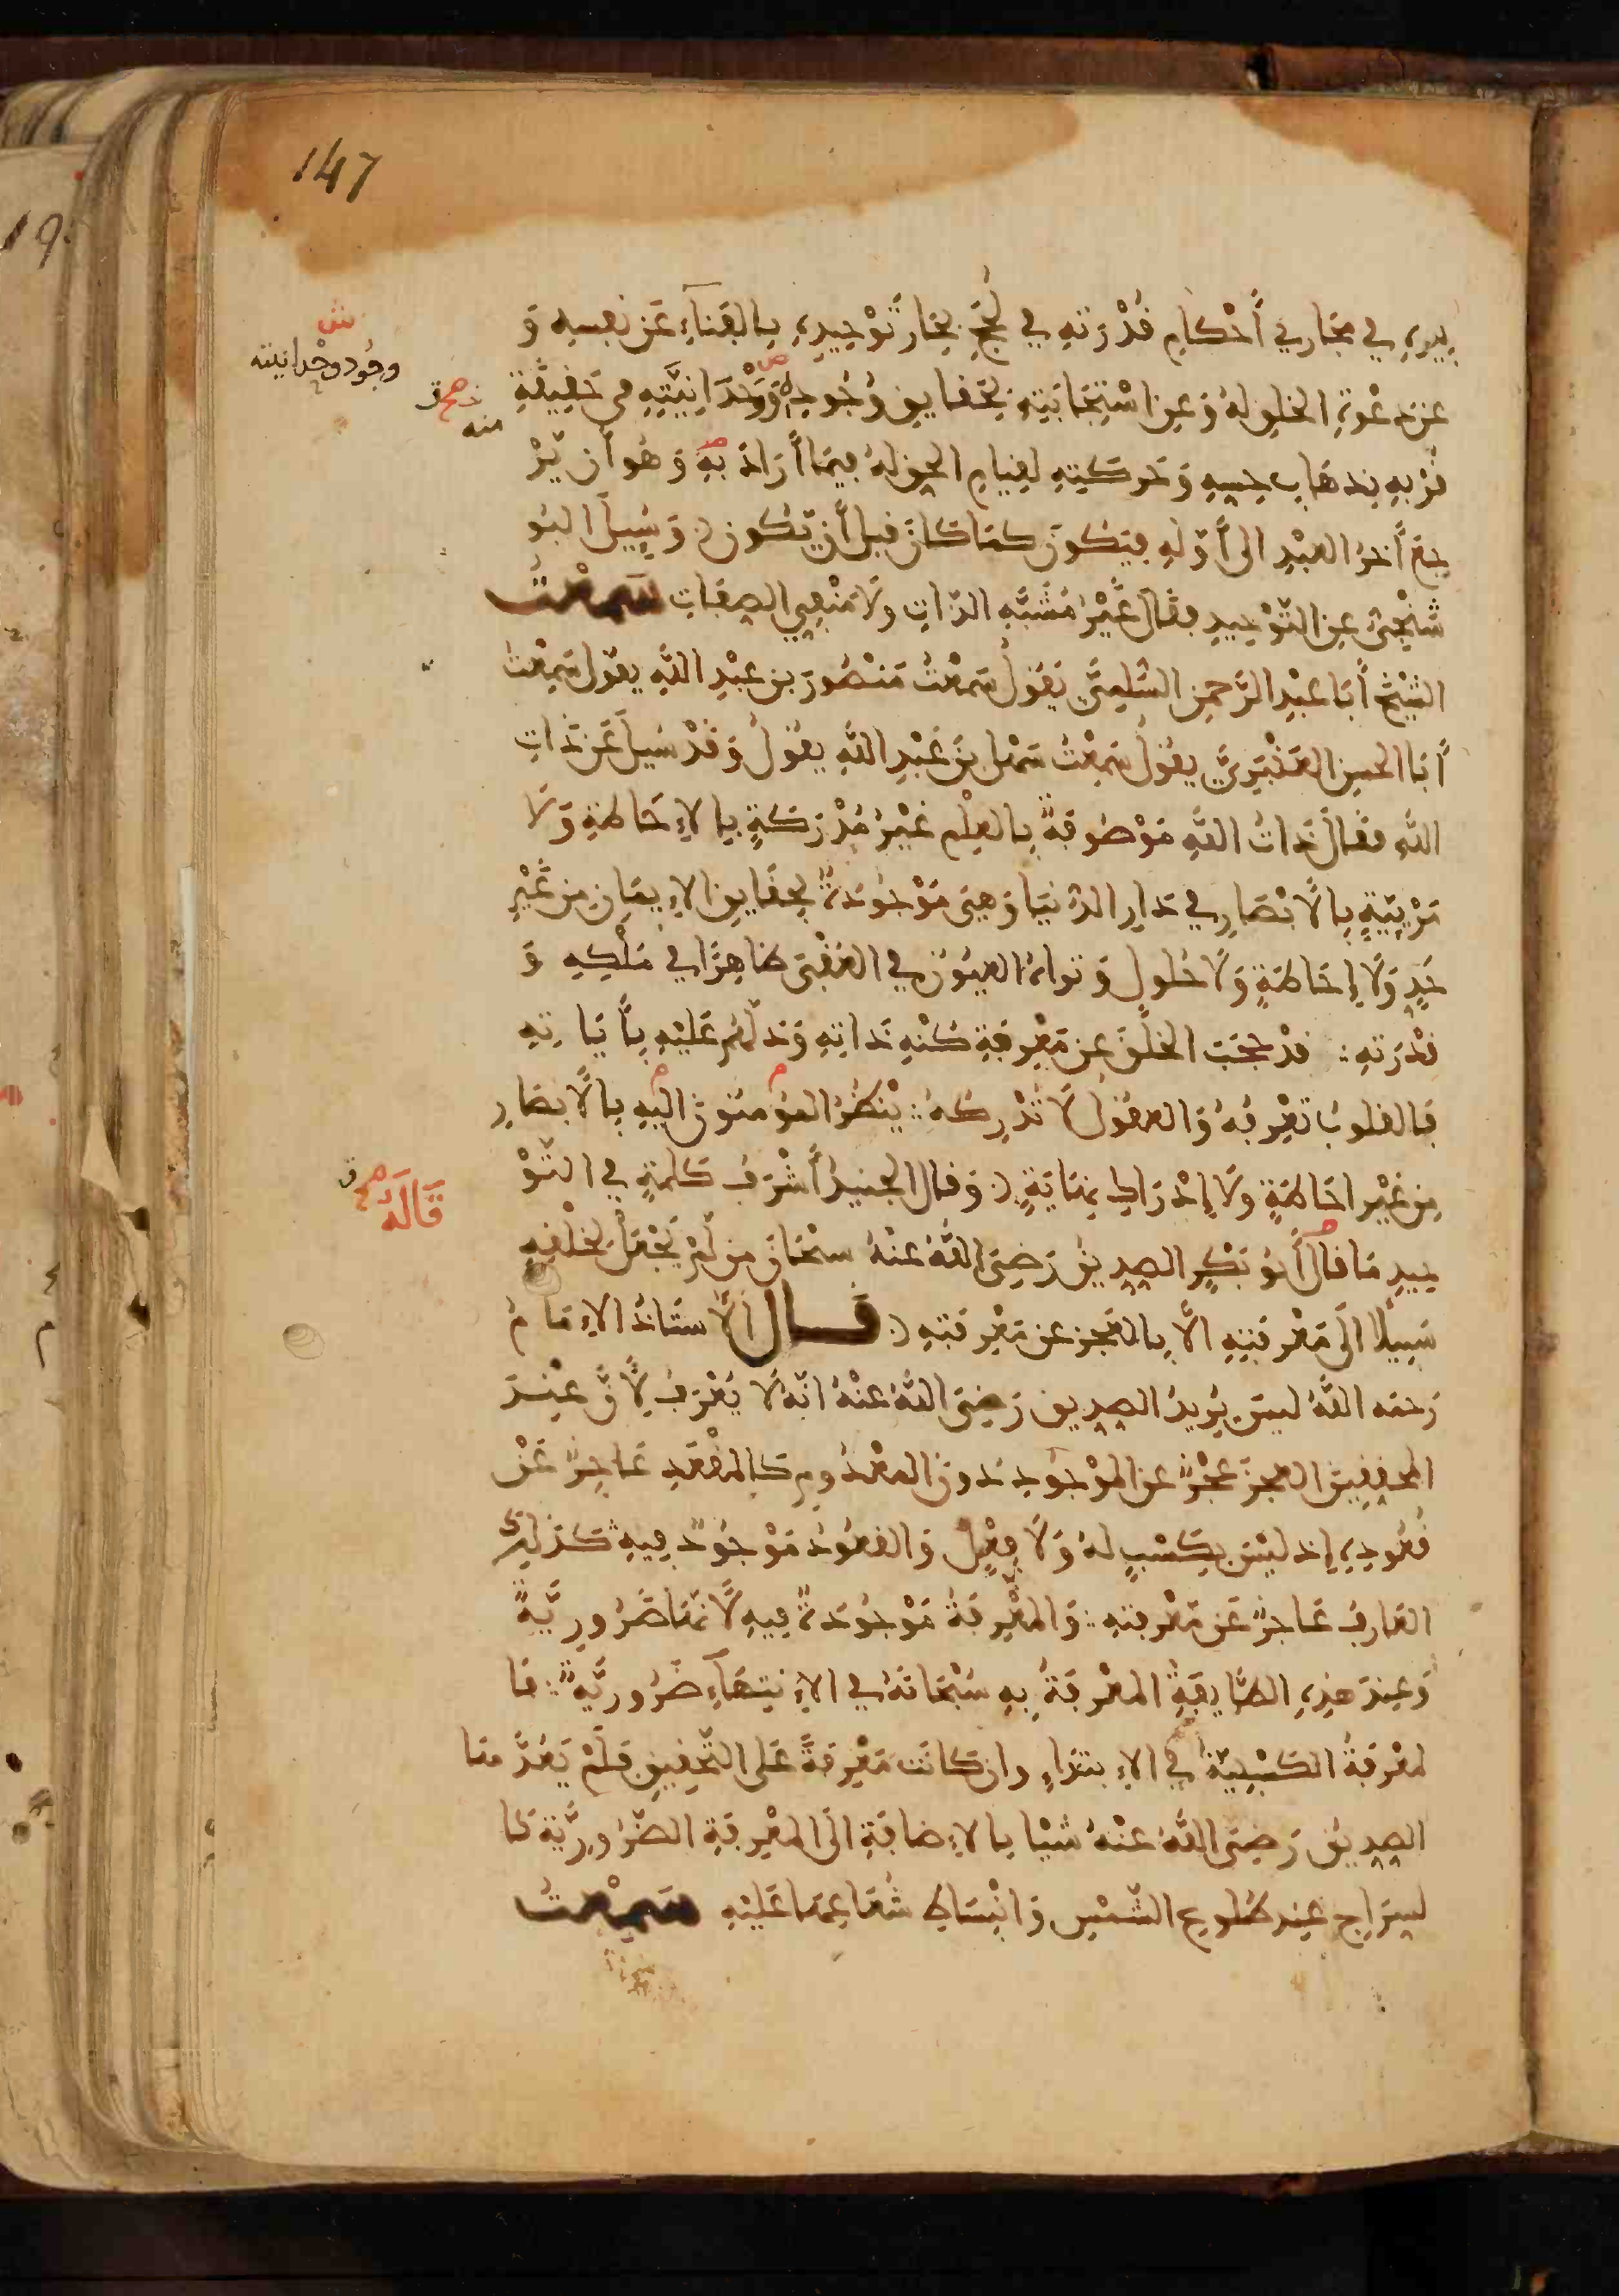 147
بيره في مجاري أحكام قدرته في لجج بحار توحيده بالفناء عن نفسه و
عن دعوة الخلق له وعن استجابته بحقايق وجوده ووحدانيته في حقيقة
قربه بذهاب حسه وحركته لقيام الحق له فيما أراد به وهو أن ير
جع أخر العبد الى أوله فيكون كما كان قبل أن يكون وسيل البو
شنجي عن التوحيد فقال غير مشبه الذات ولا منفي الصفات سمعت
الشيخ أبا عبد الرحمن السلمي يقول سمعت منصور بن عبد الله يقول سمعت
أبا الحسن العنبري يقول سمعت سهل بن عبد الله يقول وقد سيل عن ذات
الله فقال ذات الله موصوفة بالعلم غير مدركة بالإحاطة ولا
مرييّة بالأبصار في دار الدنيا وهي موجودة بحقايق الإيمان من غير
حد ولا إحاطة ولا حلول وتراه العيون في العقبى ظاهرا في ملكه و
قدرته قد حجب الخلق عن معرفة كنه ذاته ودلهم عليه بأياته
فالقلوب تعرفه والعقول لا تدركه ينظر المؤمنون اليه بالأبصار
من غير احاطة ولا إدراك نهاية وقال الجنيد أشرف كلمة في التو
حيد ما قال أبو بكر الصديق رضي الله عنه سبحان من لم يجعل لخلقه
سبيلا الى معرفته الا بالعجز عن معرفته قال الأستاذ الإمام
رحمه الله ليس يريد الصديق رضي الله عنه انه لا يعرف لأن عند
المحققين العجز عجز عن الموجود دون المعدوم كالمقعد عاجز عن
قعوده إذ ليس بكسب له ولا فعل والقعود موجود فيه كذلك
العارف عاجز عن معرفته والمعرفة موجودة فيه لأنها ضرورية
وعند هذه الطايفة المعرفة به سبحانه في الانتهاء ضرورية فا
لمعرفة الكسبية في الابتداء وان كانت معرفة على التحقيق فلم يعدها
الصديق رضي الله عنه شيا بالإضافة الى المعرفة الضرورية كا
لسراج عند طلوع الشمس وانبساط شعاعها عليه سمعت
وجود وحدانيته
منه
قاله